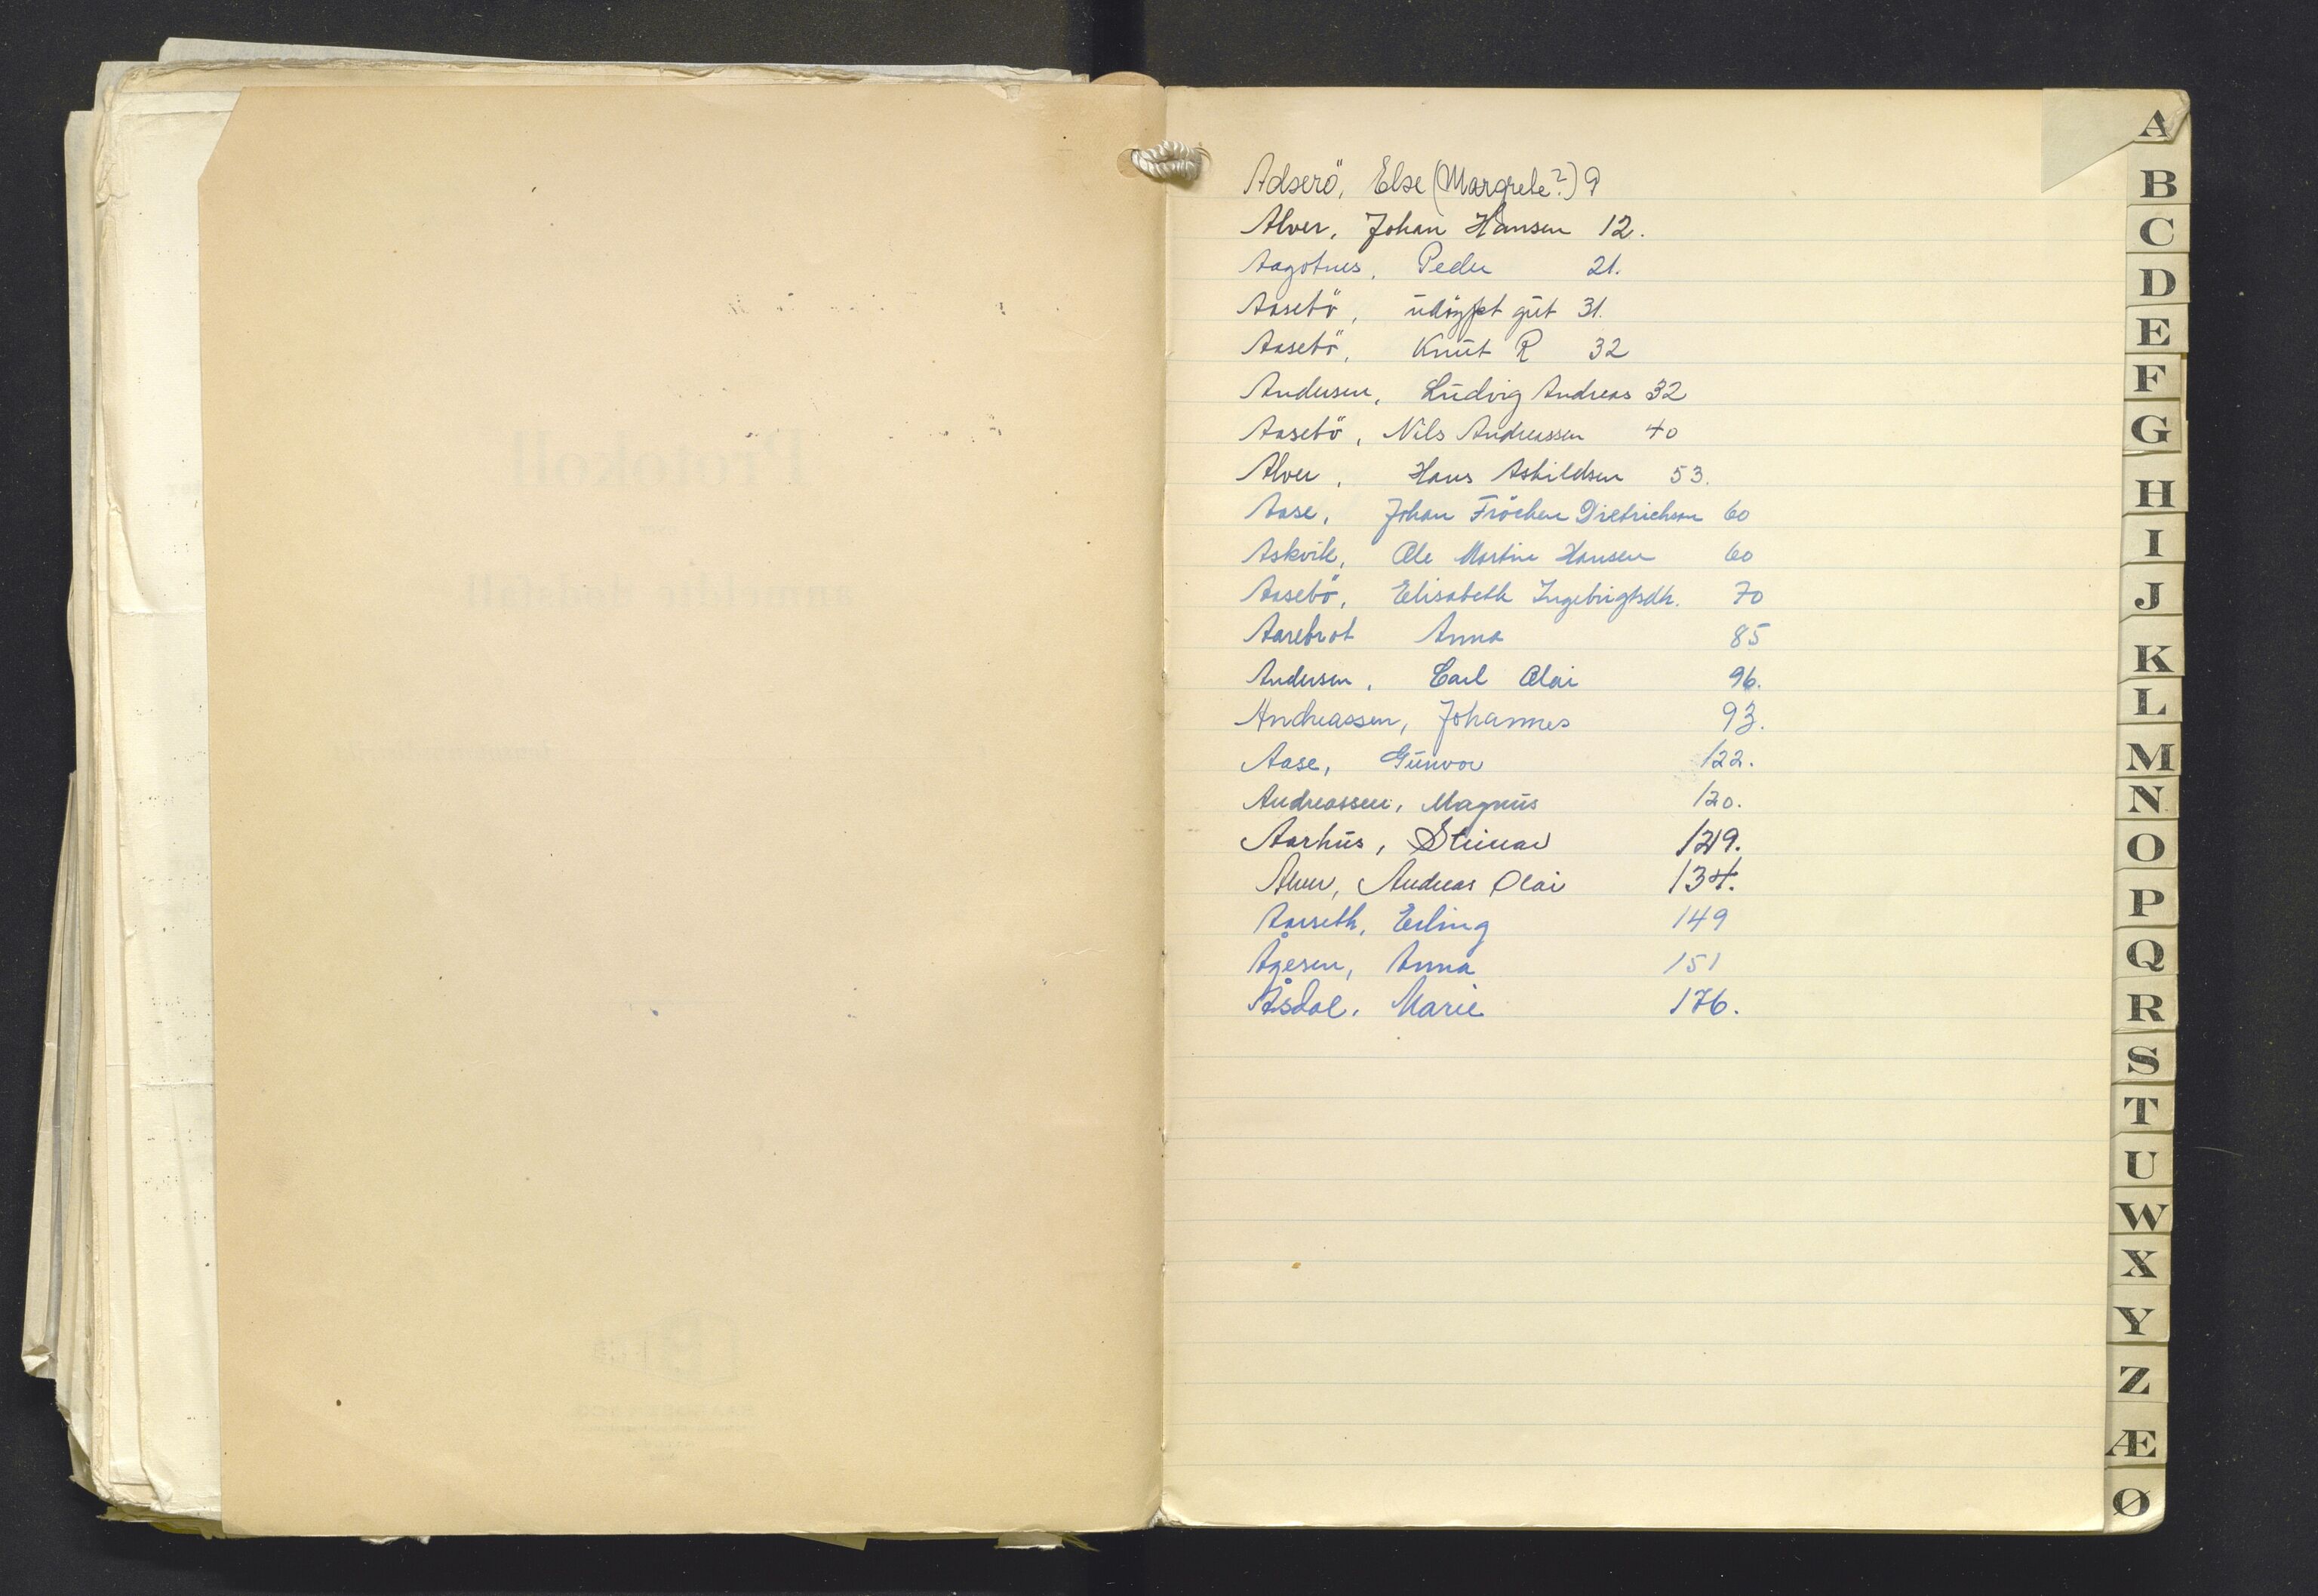 Adserö, Else (Margrete?) 9
Alver, Johan Hansen 12.
Aagotnes, Peder 21.
Aasebö, udöypt gut 31.
Aasebö, Knut R 32
Andersen, Ludvig Andreas 32
Aasebö, Nils Andreassen 40
Alver, Hans Askildsen 53.
Aase, Johan Fröchen Dietrichson 60
Askvik, Ole Martin Hansen 60
Aasebö, Elisabeth Ingebrigtsdtr. 70
Aarebrot Anna 85
Andersen, Carl Olai 96.
Andreassen, Johannes 93.
Aase, Gunvor 122.
Andreassen, Magnus 120.
Aarhus, Steinar 129.
Alver, Andreas Olai 134.
Aarseth, Erling 149
Ågesen, Anna 151
Åsdal, Marie 176.
A
B
C
D
E
F
G
H
I
J
K
L
M
N
O
P
Q
R
S
T
U
W
X
Y
Z
Æ
Ø